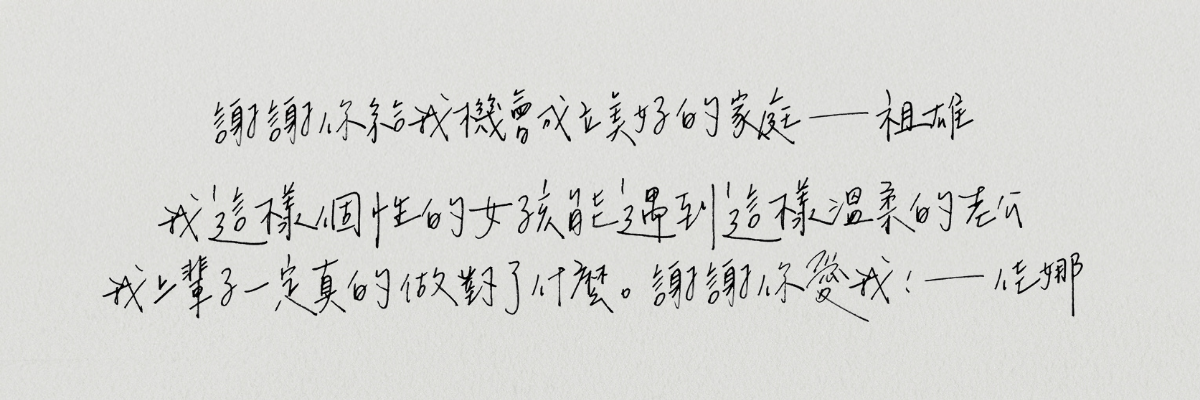 謝謝你給我機會成立美好的家庭——祖雄
我這樣個性的女孩能遇到這樣溫柔的老公
我上輩子一定真的做對了什麼。謝謝你愛我！——佳娜